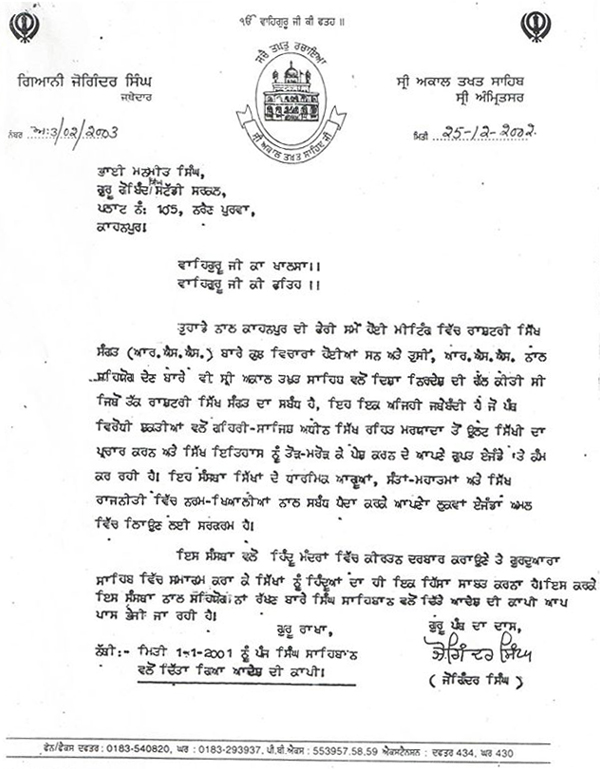 ੴ ਵਾਹਿਗੁਰੂ ਜੀ ਕੀ ਫਤਹ ॥
ਗਿਆਨੀ ਜੋਗਿੰਦਰ ਸਿੰਘ
ਜਥੇਦਾਰ
ਸਚੈ ਤਖਤੁ ਰਚਾਇਆ
ਸ੍ਰੀ ਅਕਾਲ ਤਖ਼ਤ ਸਾਹਿਬ ਜੀ
ਸ੍ਰੀ ਅਕਾਲ ਤਖਤ ਸਾਹਿਬ
ਸ੍ਰੀ ਅੰਮ੍ਰਿਤਸਰ
ਨੰਬਰ ਅ:3/02/2003
ਮਿਤੀ 25-12-2002
ਭਾਈ ਮਨਮੀਤ ਸਿੰਘ,
ਗੁਰੂ ਗੋਬਿੰਦ ਸਿੰਘ ਸਟੱਡੀ ਸਰਕਲ,
ਪਲਾਟ ਨੰ: 105, ਨਰੈਣ ਪੁਰਵਾ,
ਕਾਹਨਪੁਰ।
ਵਾਹਿਗੁਰੂ ਜੀ ਕਾ ਖਾਲਸਾ।।
ਵਾਹਿਗੁਰੂ ਜੀ ਕੀ ਫਤਿਹ ।।
ਤੁਹਾਡੇ ਨਾਲ ਕਾਹਨਪੁਰ ਦੀ ਫੇਰੀ ਸਮੇਂ ਹੋਈ ਮੀਟਿੰਗ ਵਿੱਚ ਰਾਸ਼ਟਰੀ ਸਿੱਖ
ਸੰਗਤ (ਆਰ.ਐਸ.ਐਸ.) ਬਾਰੇ ਕੁਝ ਵਿਚਾਰਾਂ ਹੋਈਆਂ ਸਨ ਅਤੇ ਤੁਸੀਂ, ਆਰ.ਐਸ.ਐਸ. ਨਾਲ
ਸਹਿਯੋਗ ਦੇਣ ਬਾਰੇ ਵੀ ਸ੍ਰੀ ਅਕਾਲ ਤਖਤ ਸਾਹਿਬ ਵਲੋਂ ਦਿਸ਼ਾ ਨਿਰਦੇਸ਼ ਦੀ ਗੱਲ ਕੀਤੀ ਸੀ
ਜਿਥੋਂ ਤੱਕ ਰਾਸ਼ਟਰੀ ਸਿੱਖ ਸੰਗਤ ਦਾ ਸਬੰਧ ਹੈ, ਇਹ ਇਕ ਅਜਿਹੀ ਜਥੇਬੰਦੀ ਹੈ ਜੋ ਪੰਥ
ਵਿਰੋਧੀ ਸ਼ਕਤੀਆਂ ਵਲੋਂ ਗਹਿਰੀ-ਸਾਜਿਸ਼ ਅਧੀਨ ਸਿੱਖ ਰਹਿਤ ਮਰਯਾਦਾ ਤੋਂ ਉਲਟ ਸਿੱਖੀ ਦਾ
ਪ੍ਰਚਾਰ ਕਰਨ ਅਤੇ ਸਿੱਖ ਇਤਿਹਾਸ ਨੂੰ ਤੋੜ-ਮਰੋੜ ਕੇ ਪੇਸ਼ ਕਰਨ ਦੇ ਆਪਣੇ ਗੁਪਤ ਏਜੰਡੇ 'ਤੇ ਕੰਮ
ਕਰ ਰਹੀ ਹੈ। ਇਹ ਸੰਸਥਾ ਸਿੱਖਾਂ ਦੇ ਧਾਰਮਿਕ ਆਗੂਆਂ, ਸੰਤਾਂ-ਮਹਾਤਮਾਂ ਅਤੇ ਸਿੱਖ
ਰਾਜਨੀਤੀ ਵਿੱਚ ਨਰਮ-ਖਿਆਲੀਆਂ ਨਾਲ ਸਬੰਧ ਪੈਦਾ ਕਰਕੇ ਆਪਣਾ ਲੁਕਵਾਂ ਏਜੰਡਾ ਅਮਲ
ਵਿੱਚ ਲਿਆਉਣ ਲਈ ਸਰਗਰਮ ਹੈ।
ਇਸ ਸੰਸਥਾ ਵਲੋਂ ਹਿੰਦੂ ਮੰਦਰਾਂ ਵਿੱਚ ਕੀਰਤਨ ਦਰਬਾਰ ਕਰਾਉਣੇ ਤੇ ਗੁਰਦੁਆਰਾ
ਸਾਹਿਬ ਵਿੱਚ ਸਮਾਗਮ ਕਰਾ ਕੇ ਸਿੱਖਾਂ ਨੂੰ ਹਿੰਦੂਆਂ ਦਾ ਹੀ ਇਕ ਹਿੱਸਾ ਸਾਬਤ ਕਰਨਾ ਹੈ।ਇਸ ਕਰਕੇ
ਇਸ ਸੰਸਥਾ ਨਾਲ ਸਹਿਯੋਗ ਨਾਂ ਰੱਖਣ ਬਾਰੇ ਸਿੰਘ ਸਾਹਿਬਾਨ ਵਲੋਂ ਦਿੱਤੇ ਆਦੇਸ਼ ਦੀ ਕਾਪੀ ਆਪ
ਪਾਸ ਭੇਜੀ ਜਾ ਰਹੀ ਹੈ।
ਗੁਰੂ ਰਾਖਾ,
ਗੁਰੂ ਪੰਥ ਦਾ ਦਾਸ,
ਨੱਥੀ:- ਮਿਤੀ 1-1-2001 ਨੂੰ ਪੰਜ ਸਿੰਘ ਸਾਹਿਬਾਨ
ਵਲੋਂ ਦਿੱਤਾ ਗਿਆ ਆਦੇਸ਼ ਦੀ ਕਾਪੀ।
ਜੋਗਿੰਦਰ ਸਿੰਘ
( ਜੋਗਿੰਦਰ ਸਿੰਘ )
ਫੋਨ/ਫੈਕਸ ਦਫਤਰ : 0183-540820, ਘਰ : 0183-293937, ਪੀ.ਬੀ.ਐਕਸ : 553957.58.59 ਐਕਸਟੈਨਸ਼ਨ : ਦਫਤਰ 434, ਘਰ 430